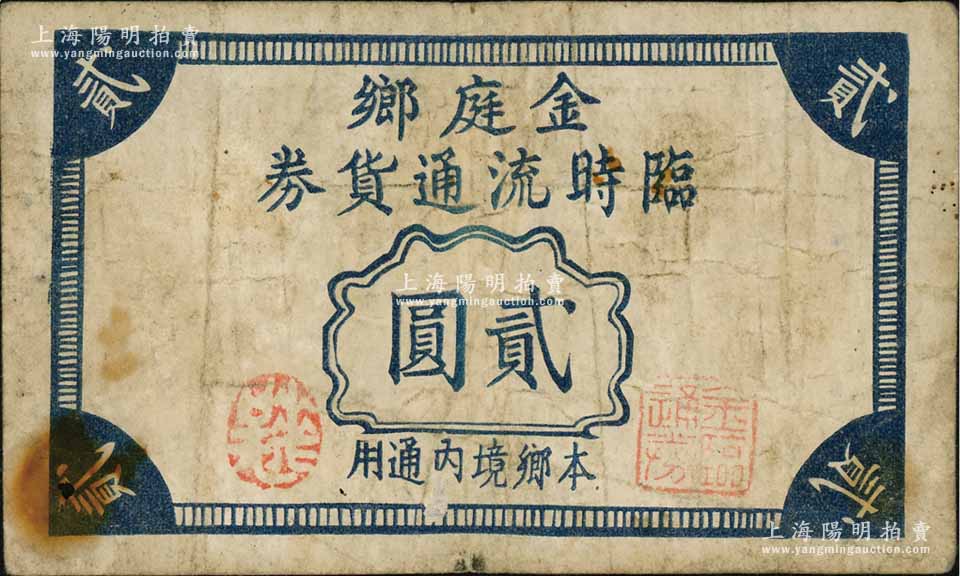 上海陽明拍賣
www.yangmingauction.com
貳
貳
金庭鄉
臨時流通貨券
上海陽明拍賣
www.yangmingauction.com
貳圓
本鄉境內通用
貳
貳
上海陽明拍賣
www.yangmingauction.com